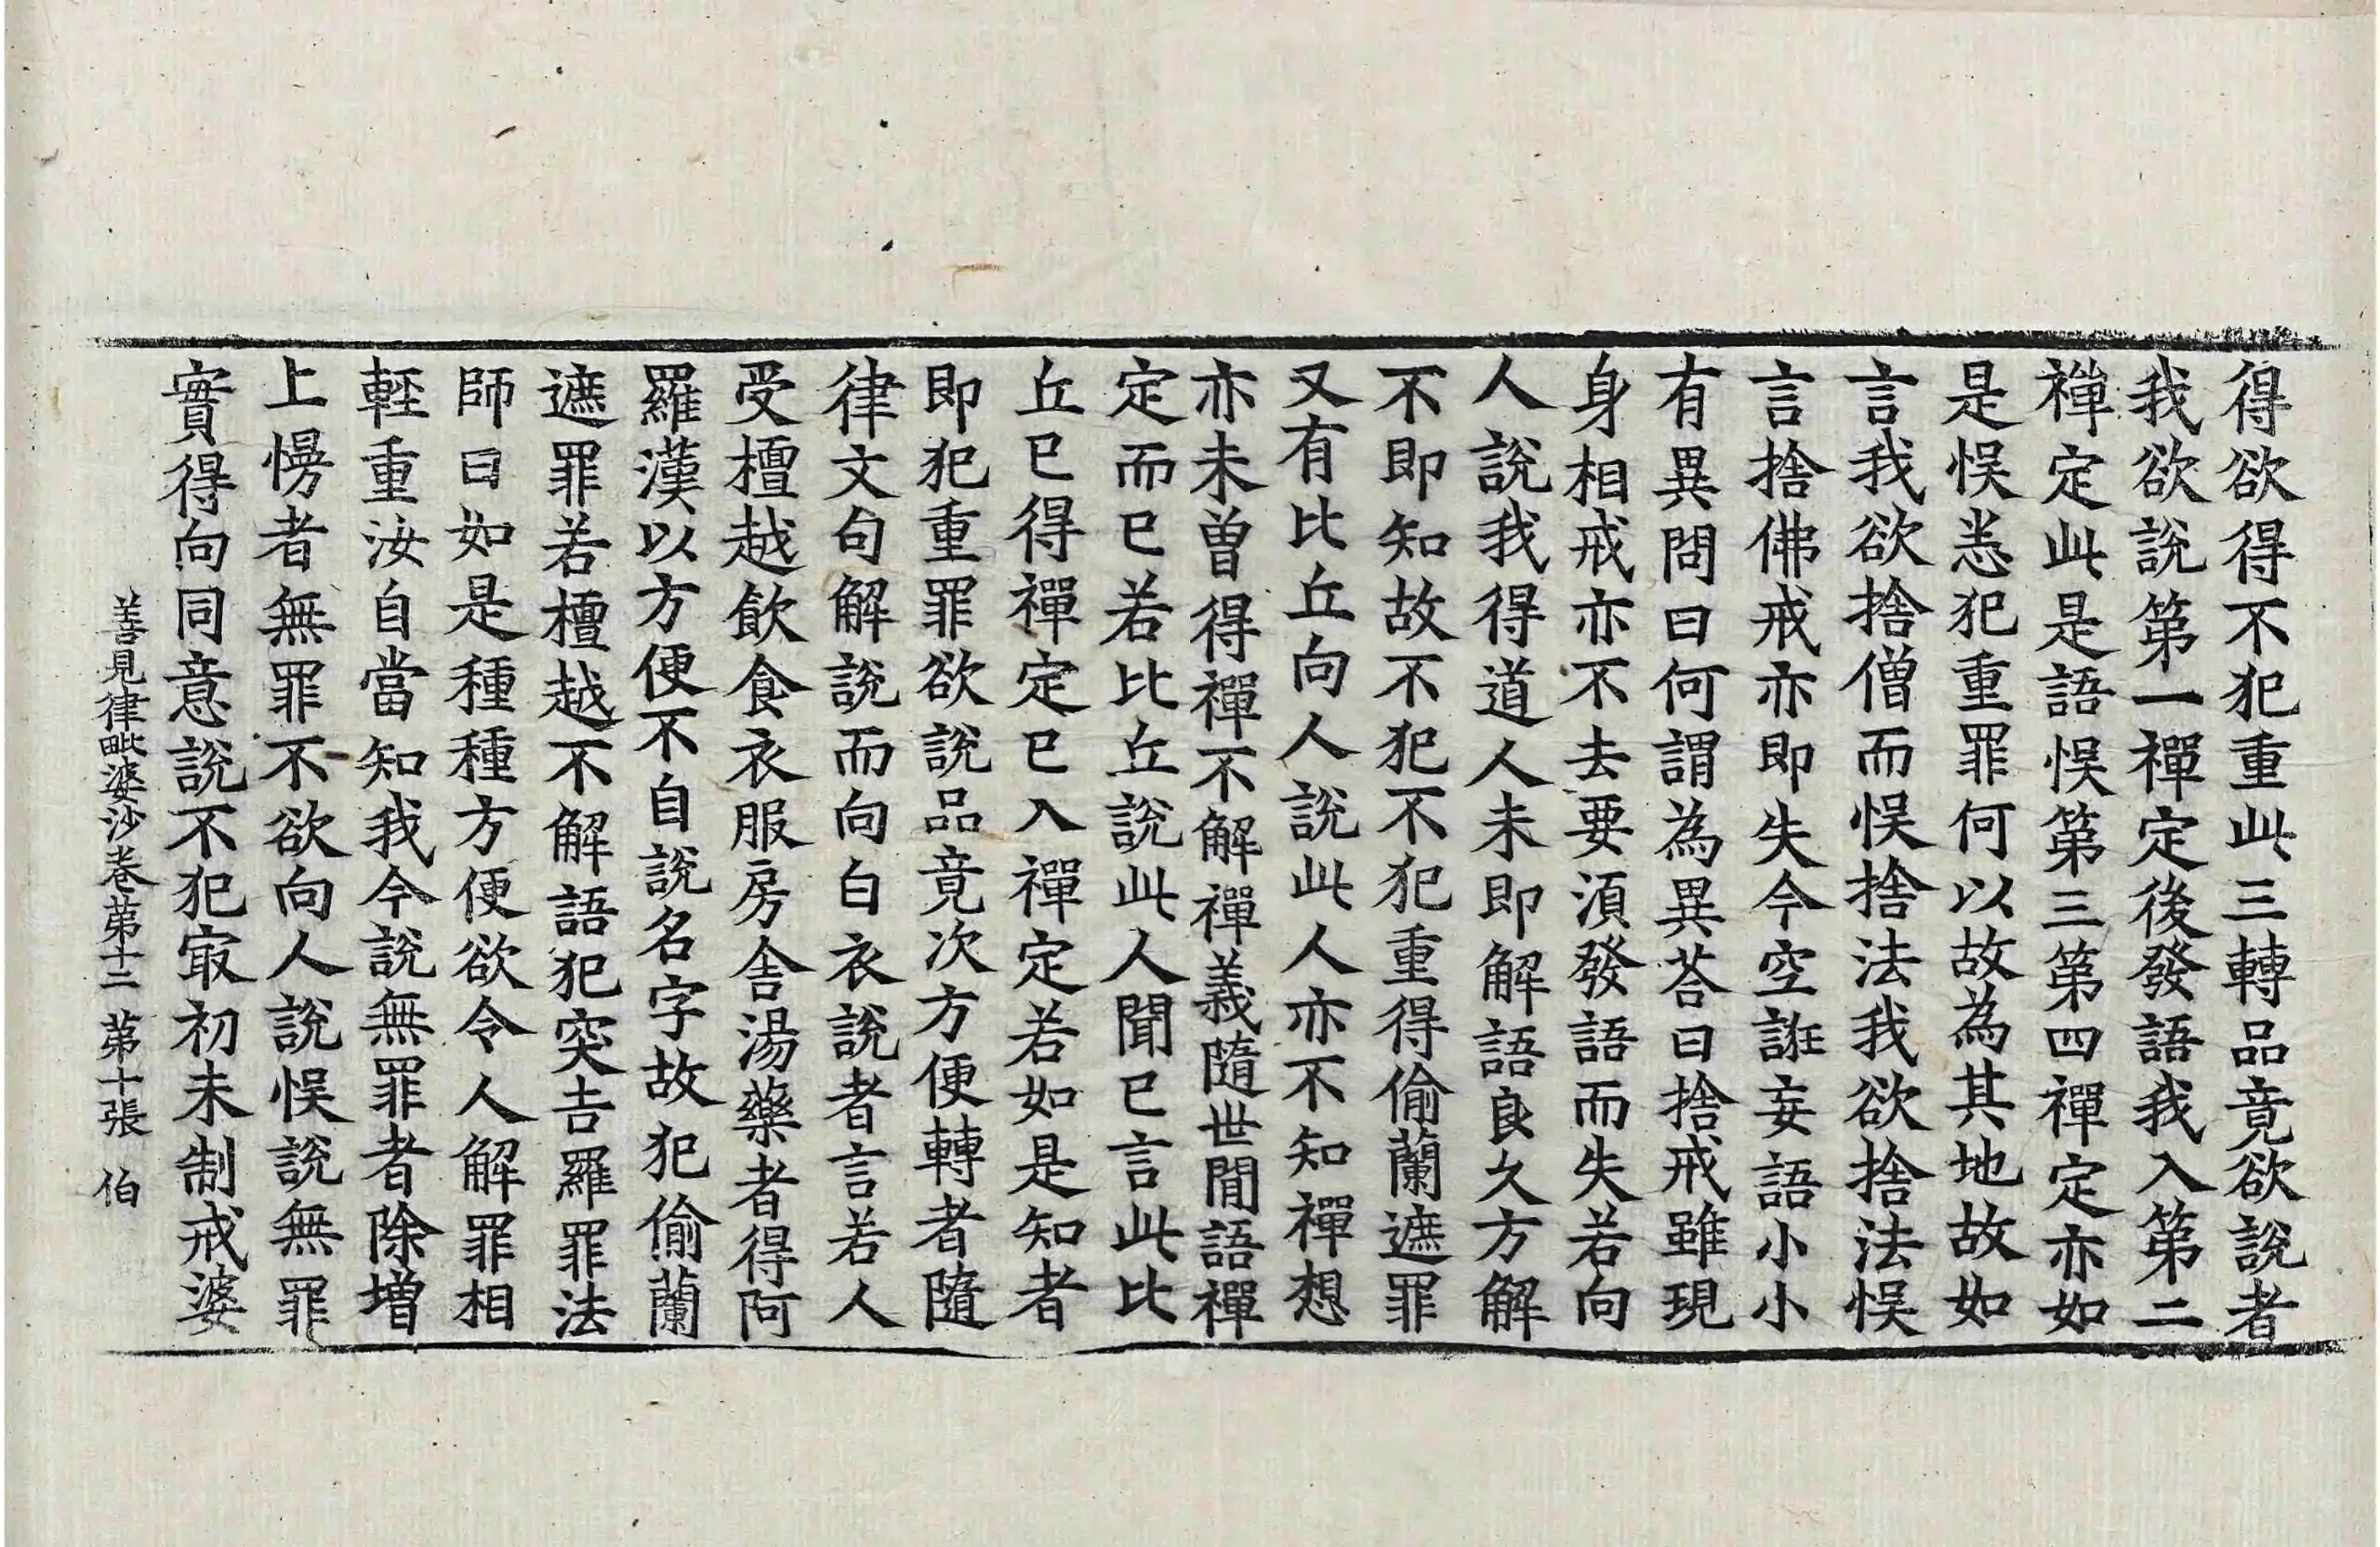 得欲得不犯重此三轉品竟欲說者
我欲說第一禪定後發語我入第二
禪定此是語悮第三第四禪定亦如
是悮恙犯重罪何以故為其地故如
言我欲捨僧而悮捨法我欲捨法悮
言捨佛戒亦即失今空誑妄語小小
有異問曰何謂為異荅曰捨戒雖現
身相戒亦不去要湏發語而失若向
人說我得道人未即解語良久方解
不即知故不犯不犯重得偷蘭遮罪
又有比丘向人說此人亦不知禪想
亦未曽得禪不解禪義隨世間語禪
定而已若比丘說此人聞已言此比
丘已得禪定已入禪定若如是知者
即犯重罪欲說品竟次方便轉者隨
律文句解說而向白衣說者言若人
受檀越飲食衣服房舎湯藥者得阿
羅漢以方便不自說名字故犯偷蘭
遮罪若檀越不解語犯突吉羅罪法
師曰如是種種方便欲令人解罪相
輕重汝自當知我今說無罪者除增
上慢者無罪不欲向人說悮說無罪
實得向同意說不犯㝡初未制戒婆
善見律毗婆沙卷苐十二　苐十張　伯